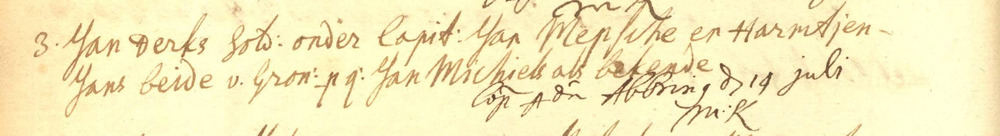 3. Jan Derks Sold: onder Capit: Jan Mepsche en Harmtjen-
Jans beide v. Gron: p q. Jan Michiels als bekende
Cop A dn Abbring d 14 juli
M: K